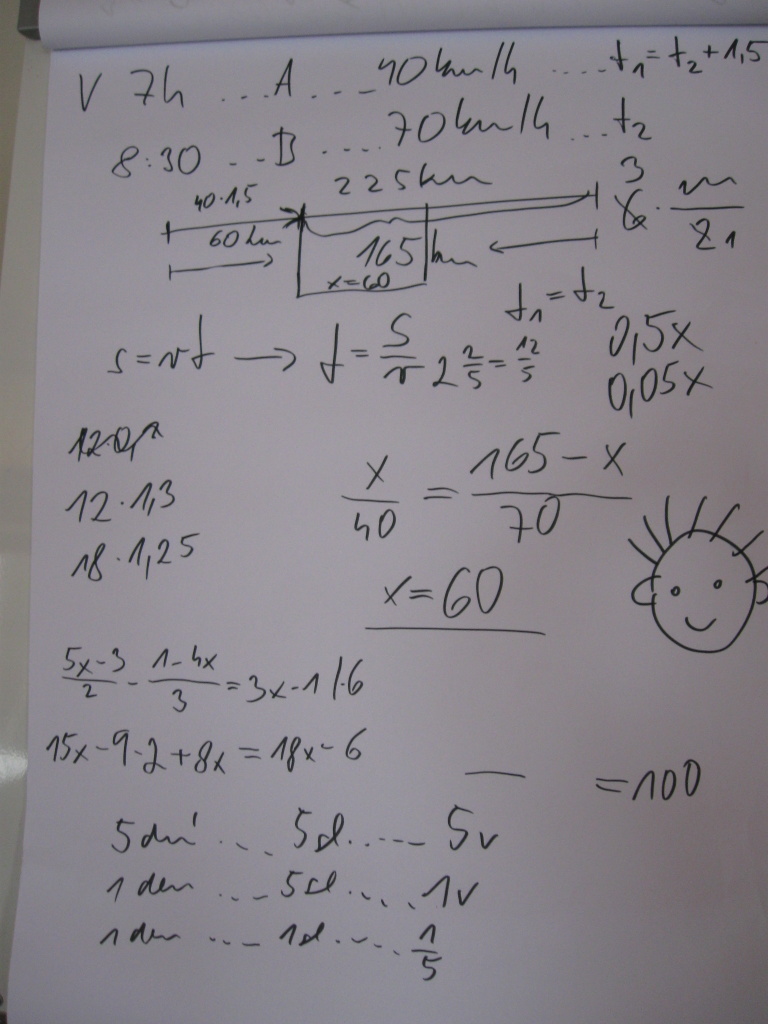 V 7h ... A ... 40km/h .... t₁ = t₂ + 1,5
8:30 ... B .... 70km/h ... t₂
40·1,5 225km 3
6 · m/21
60 km 165 km
x=60
t₁ = t₂
s = vt → t = s/v 2 2/5 = 12/5 0,5x
0,05x
12·1,3
18·1,25
x/40 = (165 - x)/70
x = 60
(5x-3)/2 - (1-4x)/3 = 3x-1 /·6
15x - 9 - 2 + 8x = 18x - 6
= 100
5 dní .... 5d ..... 5v
1 den .... 5d .... 1v
1 den .... 1d ..... 1/5